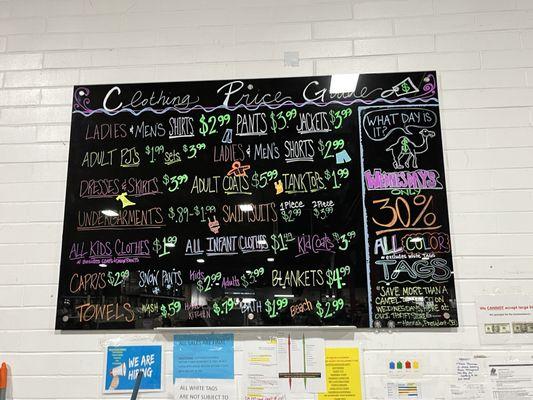 Clothing Price Guide
LADIES & MEN'S SHIRTS $2.99 PANTS $3.99 JACKETS $3.99
ADULT PJ'S $1.99 Sets $3.99 LADIES & MEN'S SHORTS $2.99
DRESSES & SKIRTS $3.99 ADULT COATS $5.99 TANK TOPS $1.99
UNDERGARMENTS $.89-$1.99 SWIMSUITS 1 Piece $2.99 2 Piece $3.99
ALL KIDS CLOTHES $1.99 ALL INFANT CLOTHES $1.49 Kid Coats $3.99
CAPRIS $2.99 SNOW PANTS Kids $2.99 Adults $3.99 BLANKETS $4.99
TOWELS WASH $.59 KITCHEN $.79 BATH $1.99 Beach $2.99
WHAT DAY IS
IT?
WEDNESDAYS
ONLY
30%
ALL COLOR
excludes white tags
TAGS
"SAVE MORE THAN A
CAMEL
WEDNESDAYS, HERE AT
OUR THRIFT STORE"
-Hannah, President
WE ARE
HIRING
ALL SALES ARE FINAL
ALL WHITE TAGS
ARE NOT SUBJECT TO
We CANNOT accept large